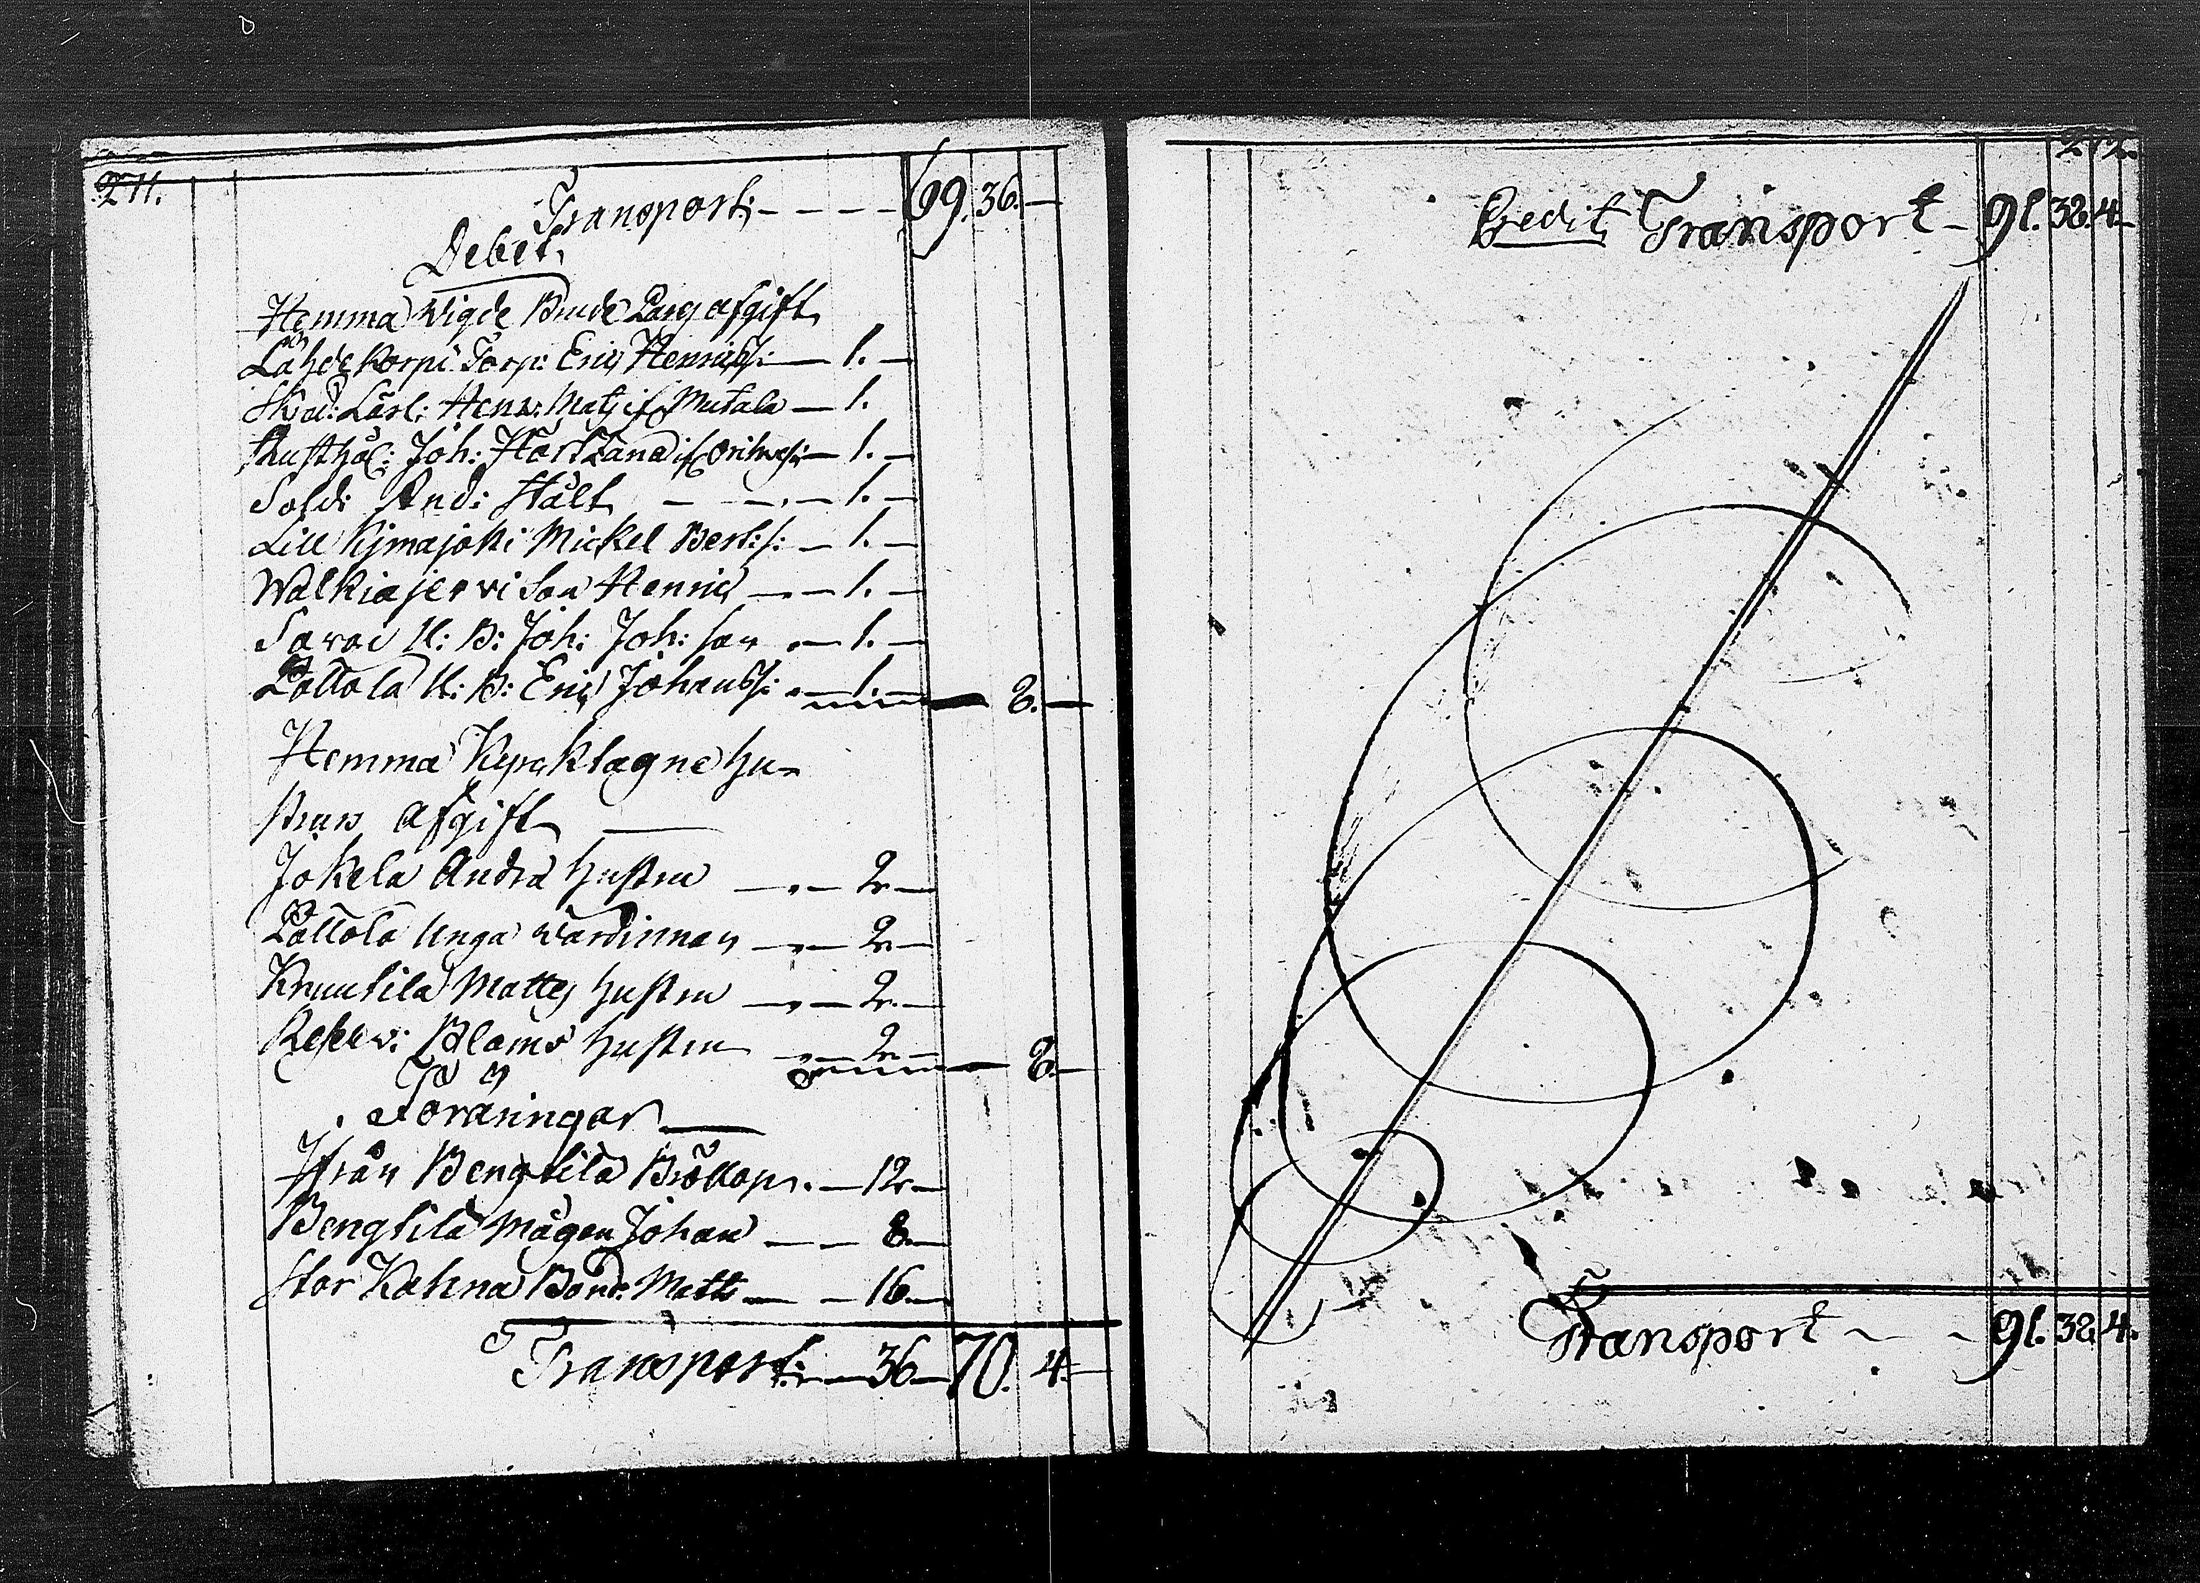 271.
Transport: - - - - 69. 36. -
Debet,
Hemma Wigde Brude Parg afgift
Lähdekorpi Torp: Eric Henricss: - 1. -
Skräd: Lärl: Henr: Mats if Mutala - 1.
Rusthål: Joh: Harttana if Orihvesi - 1. -
Sold: And: Stålt - - - 1. -
Lill Kijmajoki Mickel Bert:s: - 1. -
Walkiajerwi Son Henric - - 1. -
Sawoi U: B: Joh: Joh: son - 1. -
Pöllölä U: B: Eric Johanss: - 1. - 8. -
Hemma Kyrcktagne hu-
struns afgift
Jokela Andrs hustru - - 2. -
Pöllölä Unga Wärdinnan - - 2. -
Knuutila Mattes hustru - - 2. -
Reserv: Bloms hustru - 2. - 8. -
Föräringar
Ifrån Bengtila Bröllop. - 12. -
Bengtila Mågen Johan - - 8. -
Stor Kahna Bond: Matts - - 16. -
Transport: - 36 - 70. 4. -
272.
Credit Transport - 91. 38. 4.
Transport - - 91. 38. 4.